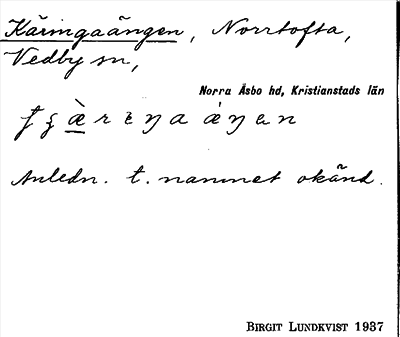 Käringaängen, Norrtofta,
Vedby sn,
Norra Åsbo hd, Kristianstads län
Anledn. t. namnet okänd.
BIRGIT LUNDKVIST 1937